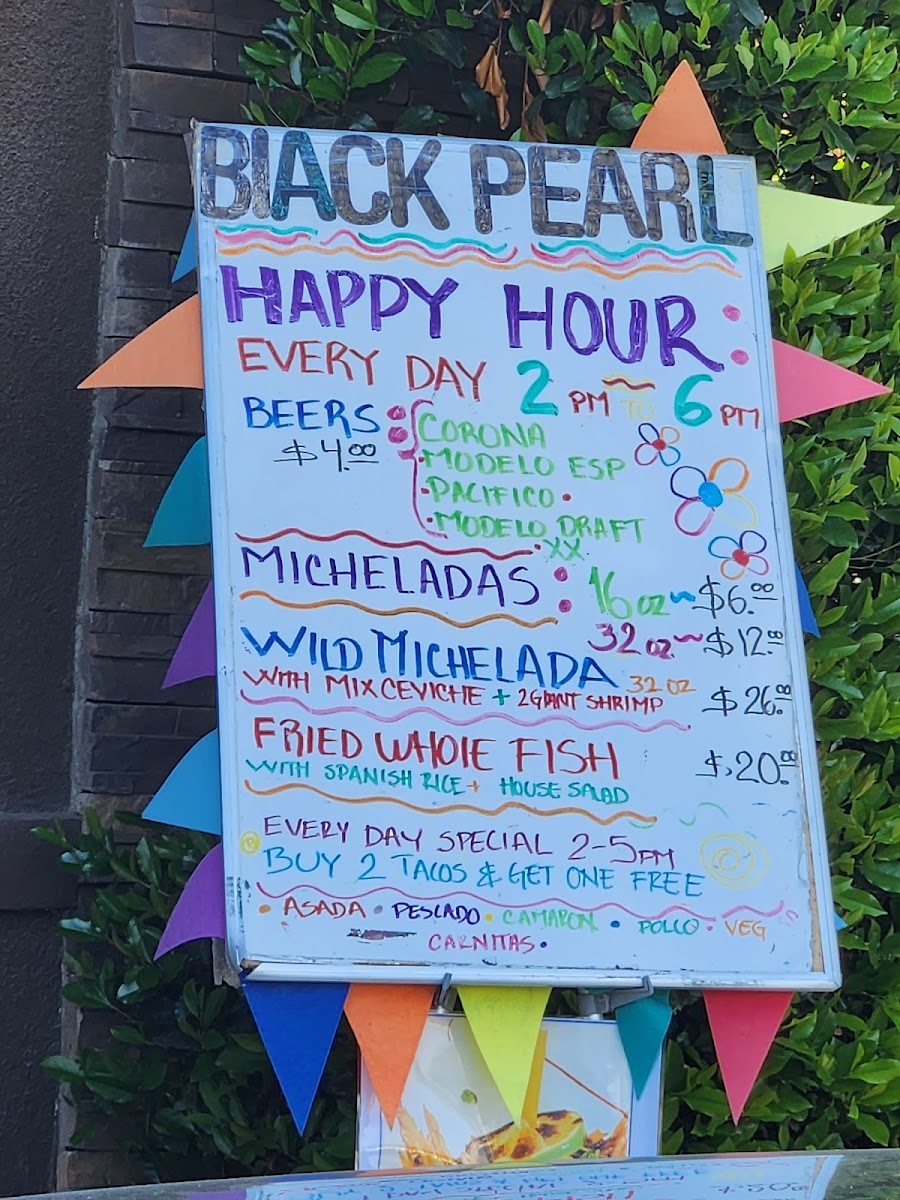 BLACK PEARL
HAPPY HOUR:
EVERY DAY 2 PM TO 6 PM
BEERS: CORONA
$4.00 · MODELO ESP
· PACIFICO ·
· MODELO DRAFT
· XX
MICHELADAS: 16 oz ~ $6.00
32 oz ~ $12.00
WILD MICHELADA 32 OZ
WITH MIX CEVICHE + 2 GIANT SHRIMP $26.00
FRIED WHOLE FISH
WITH SPANISH RICE + HOUSE SALAD $20.00
EVERY DAY SPECIAL 2-5PM
BUY 2 TACOS & GET ONE FREE
· ASADA · PESCADO · CAMARON · POLLO · VEG
CARNITAS ·